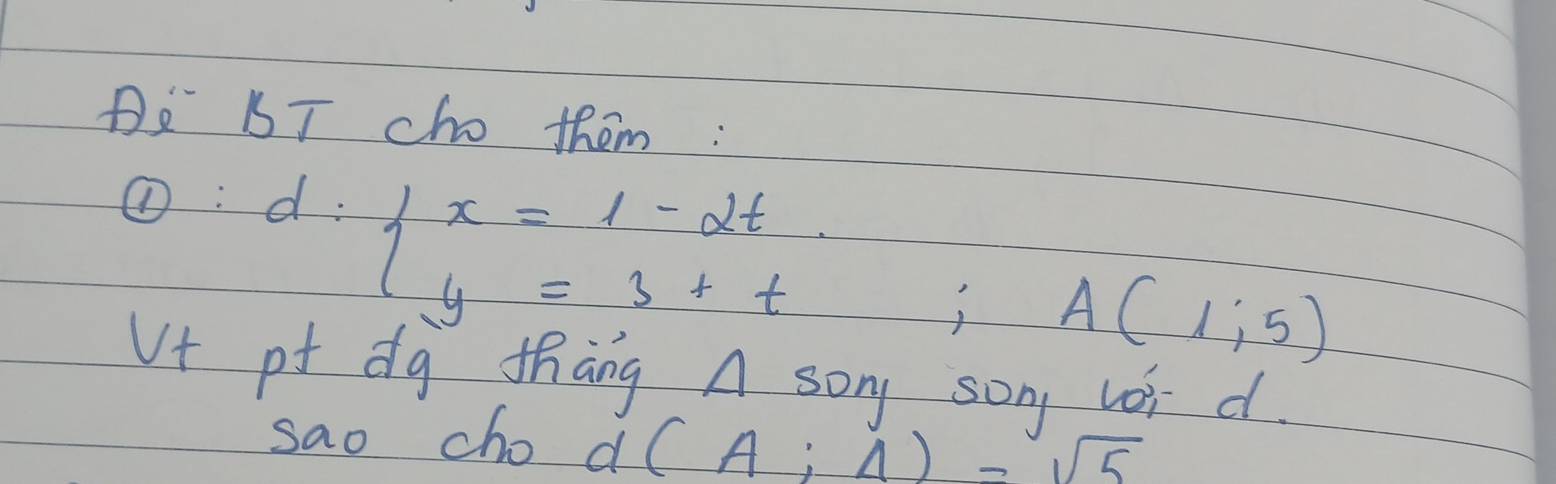 Đề BT cho thêm :
① : d : { x = 1 - 2t .
y = 3 + t ; A( 1 ; 5 )
Vt pt đg thẳng Δ song song với d .
sao cho d( A ; Δ ) = √5